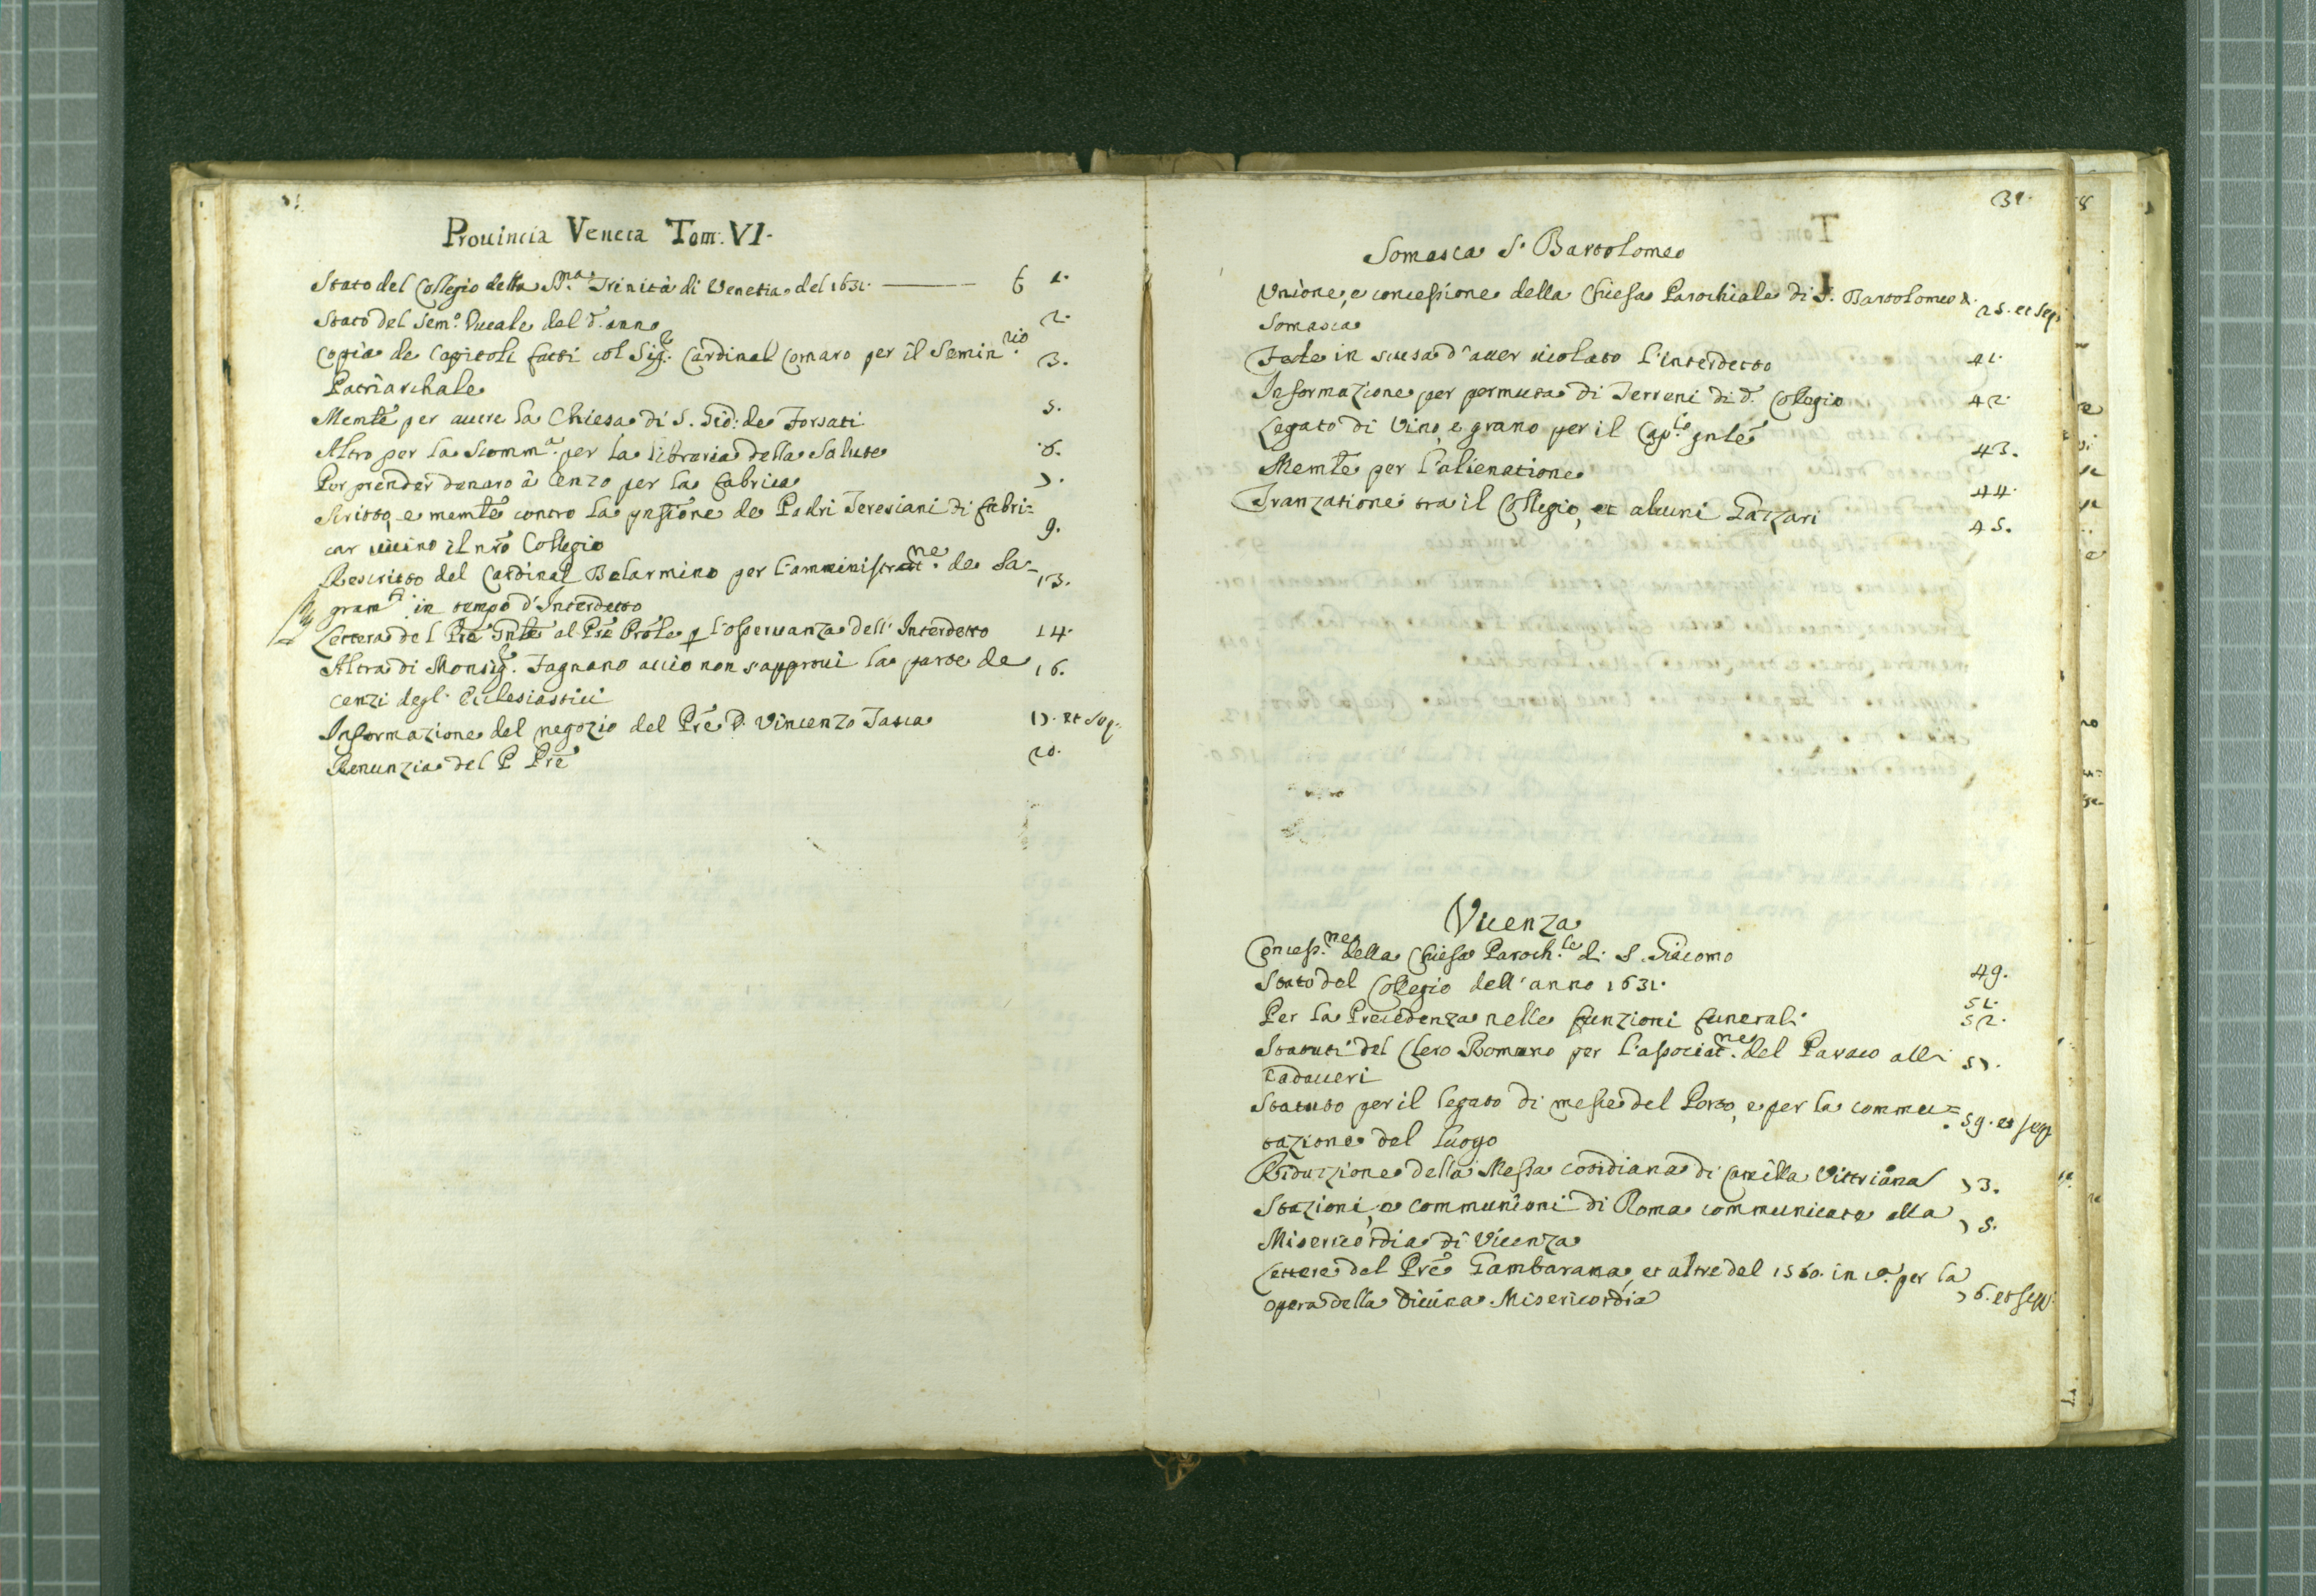 Prouincia Veneta Tom: VI.
Stato del Collegio della SS.ma Trinità di Venetia del 1631. 6 1.
Stato del Sem.o Ducale del d.o anno 2.
Copia de Capitoli fatti col Sig.r Cardinal Cornaro per il Semin.rio 3.
Patriarchale
Memle per auere la Chiesa di S. Gio: de Forsati 5.
Altro per la Scomm.a per la libraria della Salute 6.
Per prender denaro à Cenzo per la fabrica 7.
Scritto, e memle contro la pnsione de Padri Teresiani di fabri= 9.
car uicino il nro Collegio
Rescritto del Cardinal Belarmino per l'amministrat.ne de Sa= 13.
gram.ti in tempo d'Interdetto
Lettera del Pre Gnle al Pre Prole p l'osseruanza dell'Interdetto 14.
Altra di Monsig.r Fagnano acciò non s'approui la parte de 16.
cenzi degl'Ecclesiastici
Informazione del negozio del Pre D. Vincenzo Tasca 17. et seq.
Renunzia del P Pre 20.
39.
Somasca S. Bartolomeo
Vnione, e concessione della Chiesa Parochiale di S. Bartolomeo di 25. et seq.
Somasca
Fede in scusa d'auer uiolato l'interdetto 41.
Informazione per permuta di Terreni di d.o Collegio 42.
Legato di Vino, e grano per il Cap.lo gnle 43.
Memle per l'alienatione 44.
Tranzatione tra il Collegio, et alcuni Gazzari 45.
Vicenza
Concess.ne della Chiesa Paroch.le di S. Giacomo 49.
Stato del Collegio dell'anno 1631. 51.
Per la Precedenza nelle funzioni funerali 52.
Statuti del Clero Romano per l'associat.ne del Paroco alli 57.
Cadaueri
Statuto per il legato di messe del Porto, e per la commu= 59. et seq.
tazione del luogo
Riduzzione della Messa cotidiana di Camilla Vittriana 73.
Stazioni, e communioni di Roma communicate alla 75.
Misericordia di Vicenza
Lettere del Pre Gambarana, et altre del 1560. in ca. per la 76. et seqq.
opera della Diuina Misericordia